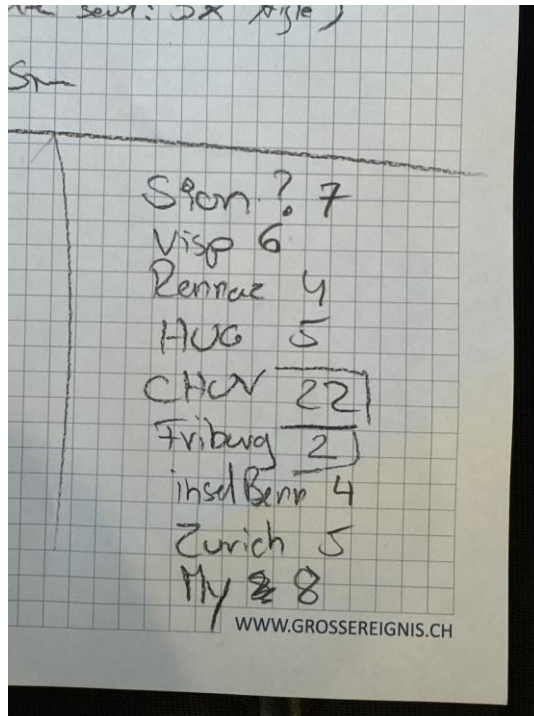 Sion ? 7
Visp 6
Rennaz 4
HUG 5
CHUV 22
Friburg 2
insel Bern 4
Zurich 5
My 8
WWW.GROSSEREIGNIS.CH